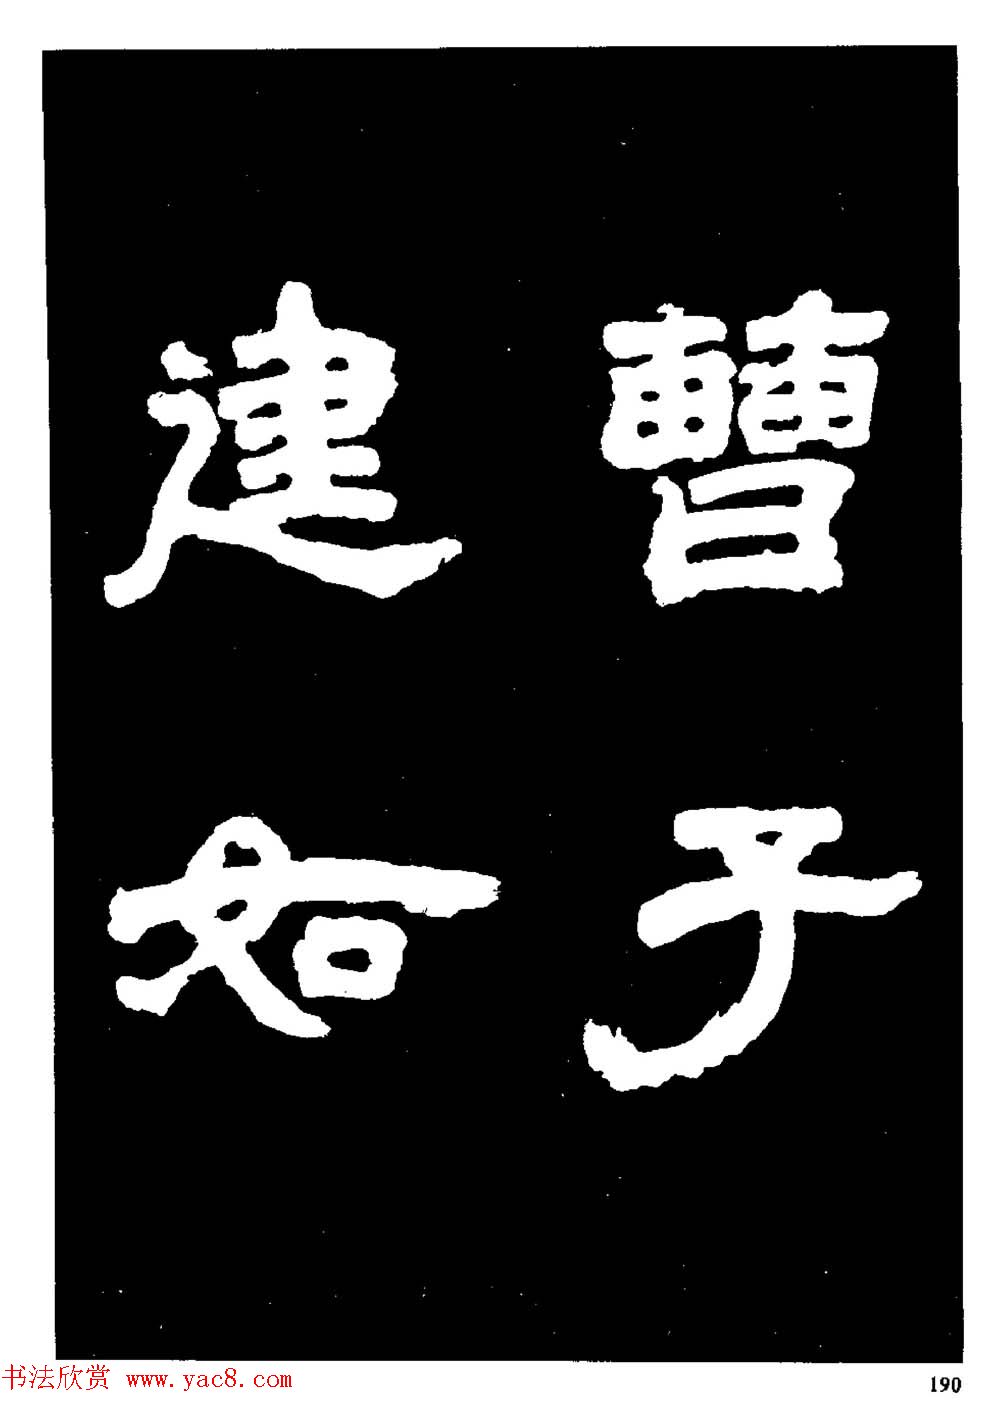 曹子
建如
书法欣赏 www.yac8.com
190